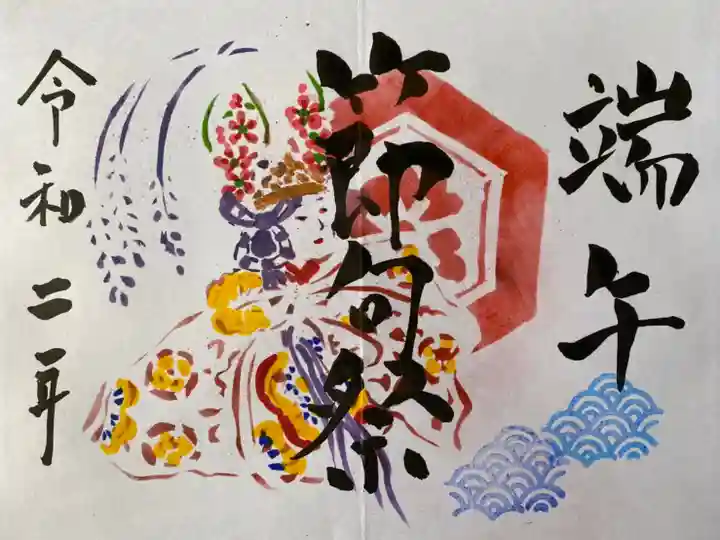 端午
節句祭
令和二年